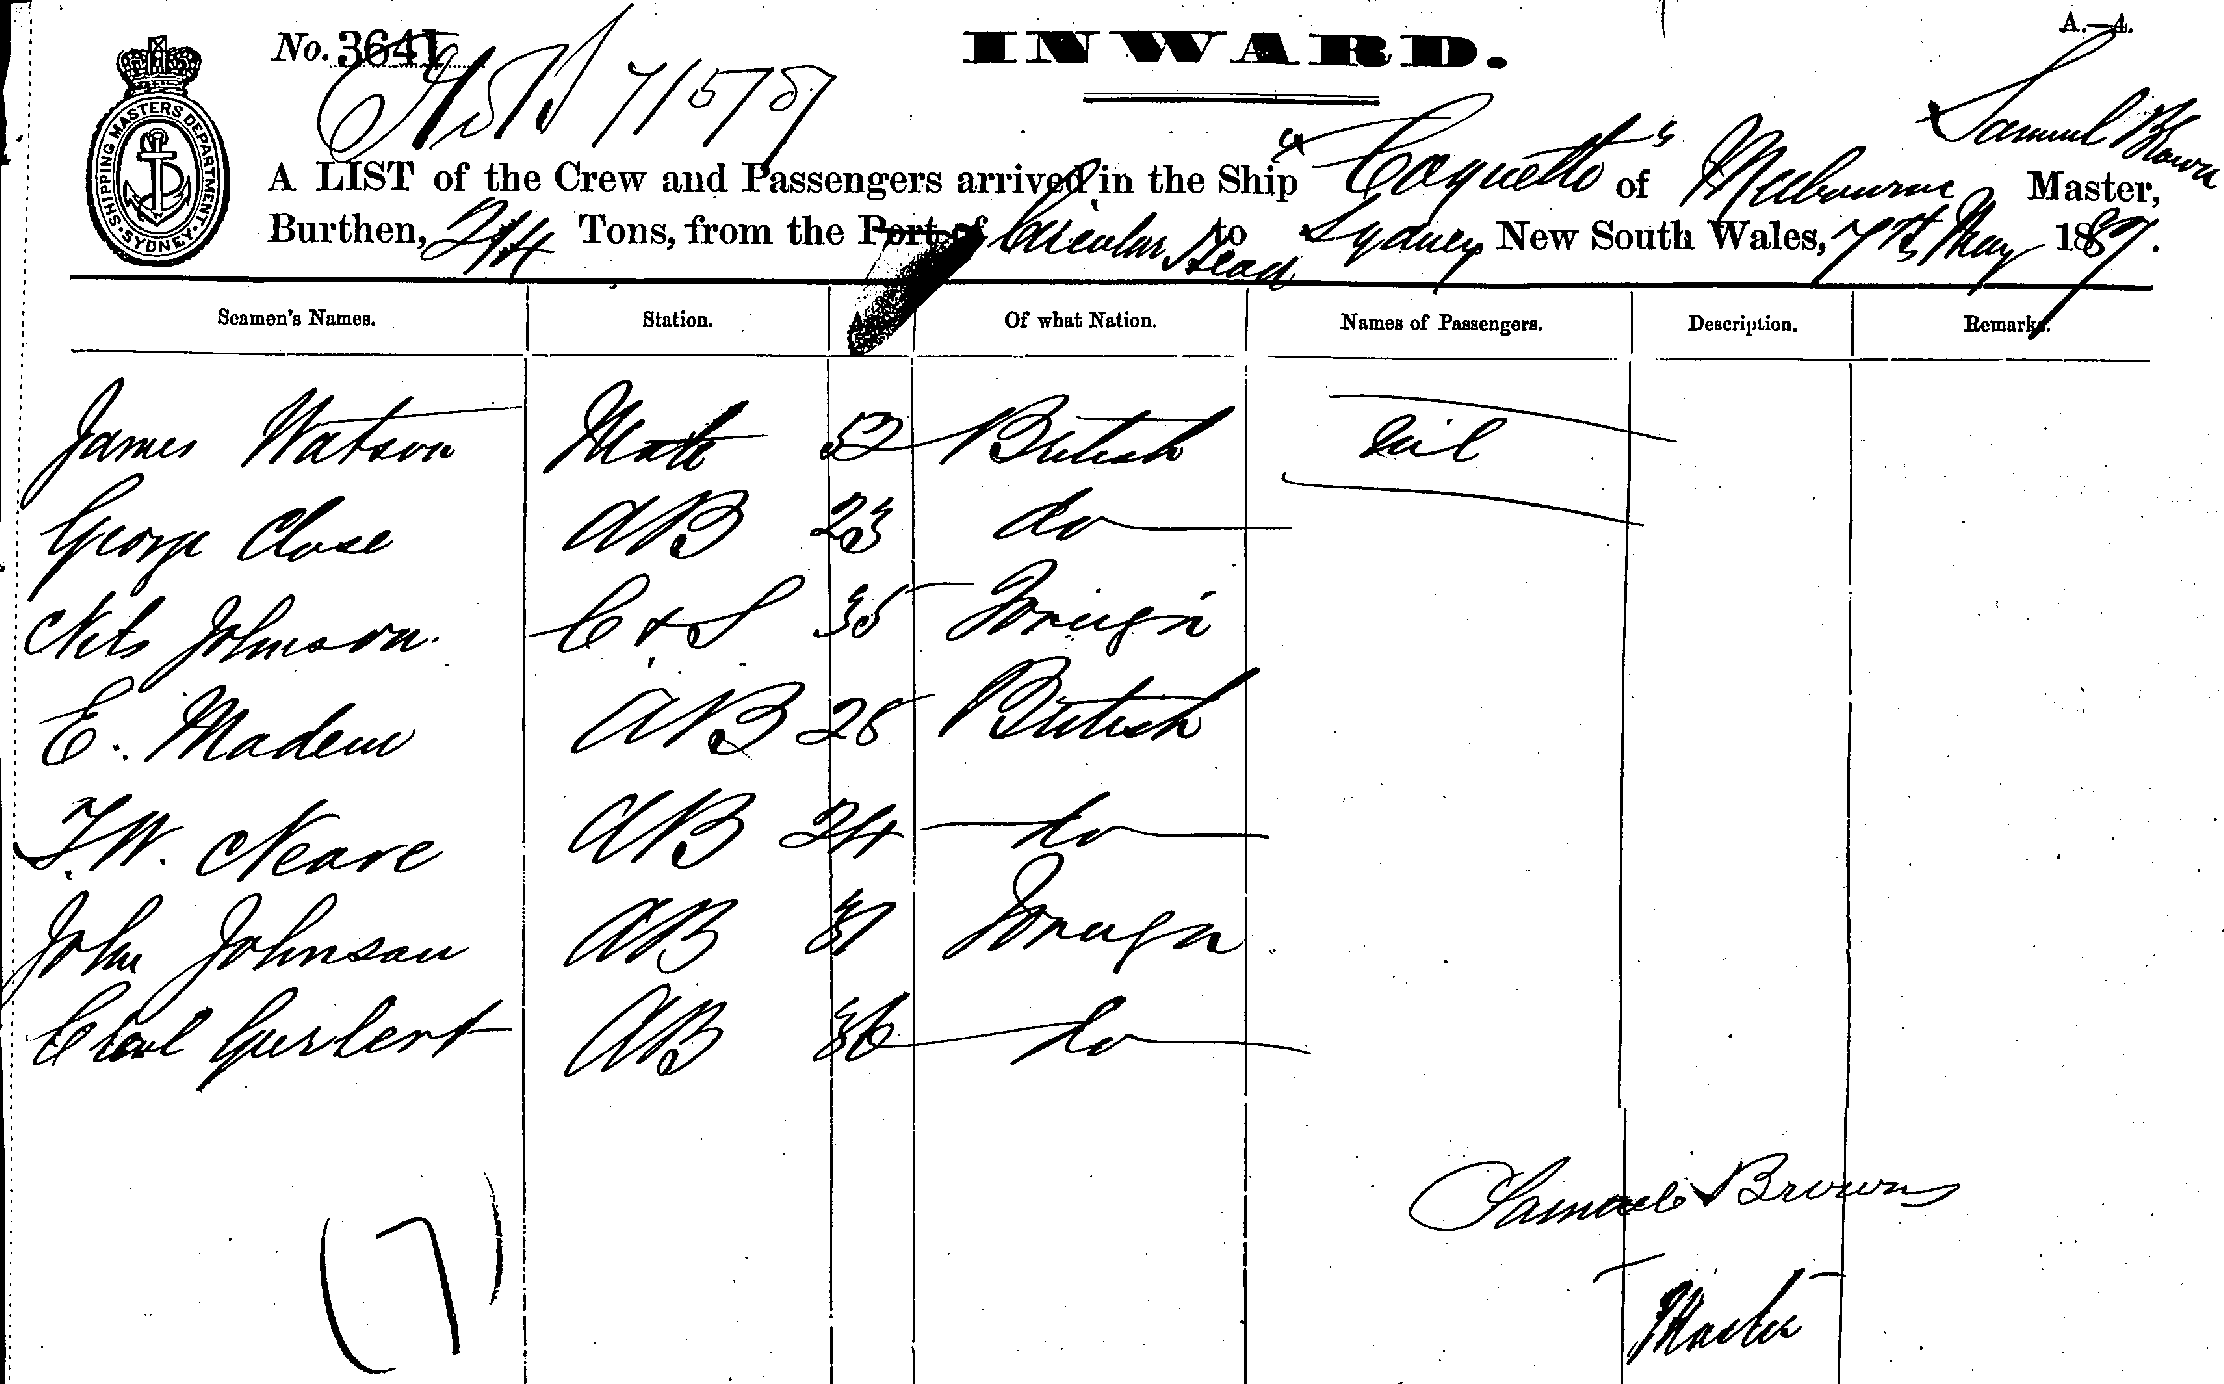 A.—4.
No. 3641 INWARD.
7/5/87
SHIPPING MASTERS DEPARTMENT SYDNEY
Samuel Brown
A LIST of the Crew and Passengers arrived in the Ship "Coquette" of Melbourne Master,
Burthen, 244 Tons, from the Port of Circular Head to Sydney New South Wales, 7th May 1887.
Seamen's Names. Station. Of what Nation. Names of Passengers. Description. Remarks.
James Watson Mate 52 British Nil
George Close AB 23 do
Nils Johnson. C & S 35 Foreign
E. AB 28 British
T.W. Neave AB 24 do
John Johnson AB 31 Foreign
Carl AB 36 do
Samuel Brown
(7)
Master